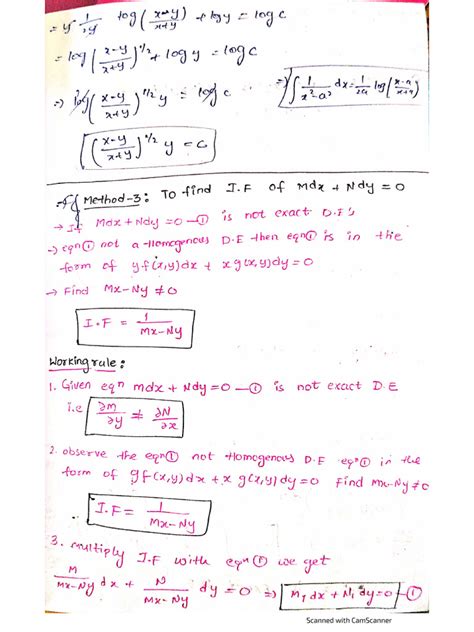 => y 1/2y log(x-y/x+y) + logy = log c
= log(x-y/x+y)^1/2 + log y = log c
=> log(x-y/x+y)^1/2 y = log c
=> ∫ 1/x²-a² dx = 1/2a log(x-a/x+a)
(x-y/x+y)^1/2 y = c
Method-3: To find I.F of Mdx + Ndy = 0
→ If Mdx + Ndy = 0 —① is not exact D.E's
→ eqn① not a Homogenous D.E then eqn① is in the
form of y f(x,y)dx + x g(x,y)dy = 0
→ Find Mx-Ny ≠ 0
I.F = 1/Mx-Ny
Working rule:
1. Given eqn mdx + Ndy = 0 —① is not exact D.E
i.e ∂M/∂y ≠ ∂N/∂x
2. observe the eqn① not Homogenous D.E eqn① in the
form of yf(x,y)dx + x g(x,y)dy = 0 Find Mx-Ny ≠ 0
I.F = 1/Mx-Ny
3. multiply I.F with eqn① we get
M/Mx-Ny dx + N/Mx-Ny dy = 0 => M₁dx + N₁dy = 0
Scanned with CamScanner